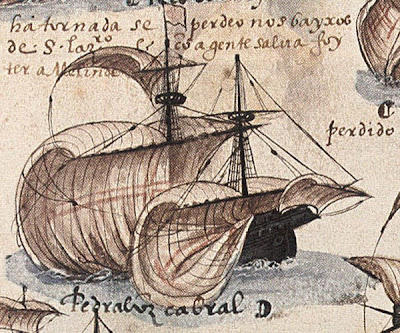 ha tornada se perdeo nos bayxos
de S. lazro co a gente salua foy
ter a Melinde
perdido
Pedraluz cabral D